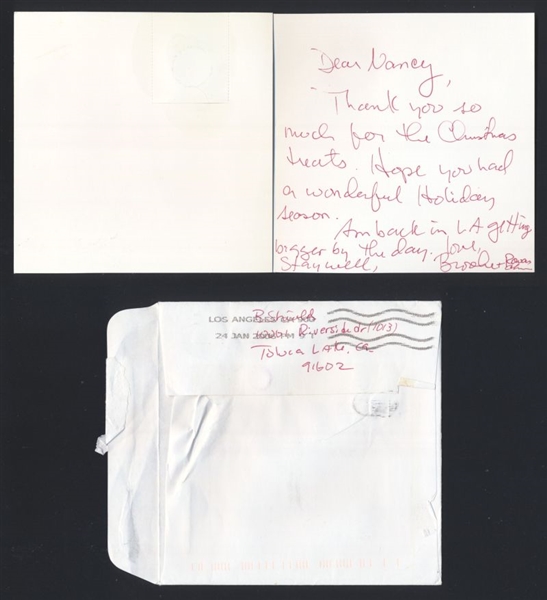 Dear Nancy,
Thank you so
much for the Christmas
treats. Hope you had
a wonderful Holiday
season.
Am back in LA getting
bigger by the day. Love,
Stay well, Brooke
LOS ANGELES
24 JAN
B. Shields
Riverside dr (1013)
Toluca Lake, Ca
91602